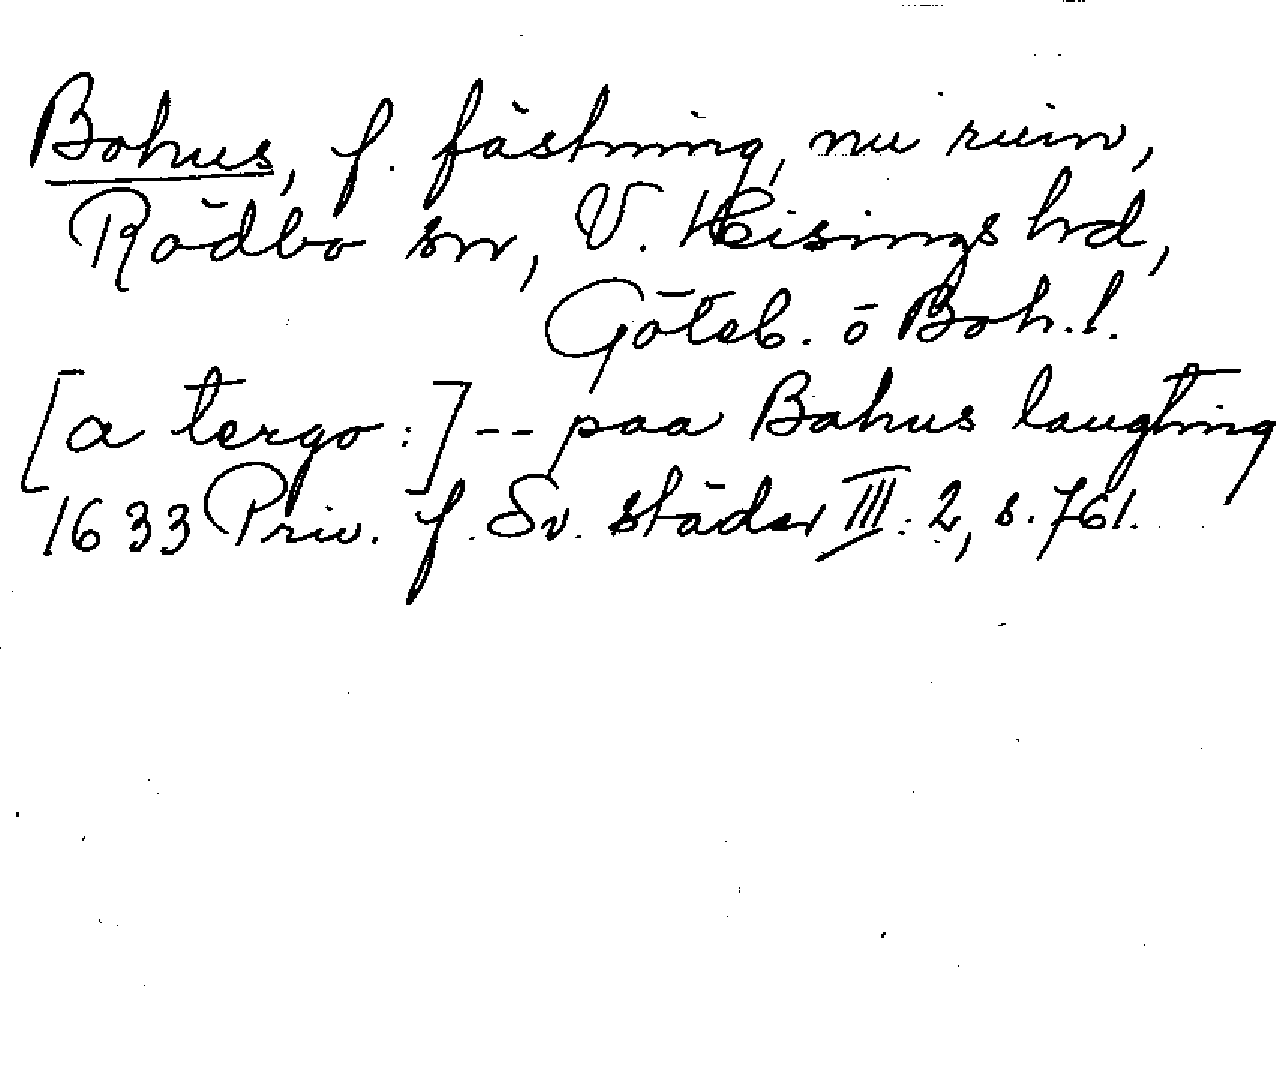 Bohus, f. fästning, nu ruin,
Rödbo sn, V. Hisings hd,
Göteb. o Boh. l.
[a tergo:] -- paa Bahus laugting
1633 Priv. f. Sv. städer III: 2, s. 761.